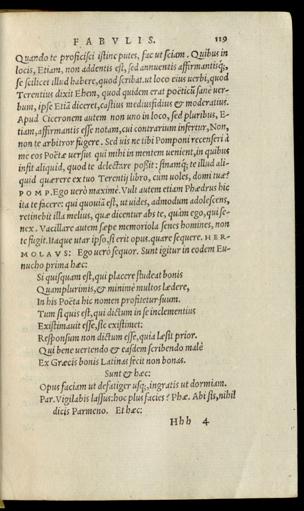 FABVLIS. 119
Quando te proficisci istinc putes, fac ut sciam. Quibus in
locis, Etiam, non addentis est, sed annuentis affirmantisq́;,
se scilicet illud habere, quod scribat. ut loco eius uerbi, quod
Terentius dixit Ehem, quod quidem erat poëticũ sanè uer-
bum, ipse Etiã diceret, castius mediusfidius & moderatius.
Apud Ciceronem autem non uno in loco, sed pluribus, E-
tiam, affirmantis esse notam, cui contrarium infertur, Non,
non te arbitror fugere. Sed uis ne tibi Pomponi recenseri à
me eos Poëtæ uersus qui mihi in mentem uenient, in quibus
insit aliquid, quod te delectare possit: sinamq́; te illud ali-
quid quærere ex tuo Terentij libro, cum uoles, domi tuæ?
POMP. Ego uerò maximè. Vult autem etiam Phædrus hic
ita te facere: qui quouiã est, ut uides, admodum adolescens,
retinebit illa melius, quæ dicentur abs te, quàm ego, qui se-
nex. Vacillare autem sæpe memoriola senes homines, non
te fugit. Itaque utar ipso, si erit opus. quare sequere. HER-
MOLAVS: Ego uerò sequor. Sunt igitur in eodem Eu-
nucho prima hæc:
Si quisquam est, qui placere studeat bonis
Quamplurimis, & minimè multos lædere,
In his Poëta hic nomen profitetur suum.
Tum si quis est, qui dictum in se inclementius
Existimauit esse, sic existimet:
Responsum non dictum esse, quia læsit prior.
Qui bene uertendo & easdem scribendo malè
Ex Græcis bonis Latinas fecit non bonas.
Sunt & hæc:
Opus faciam ut defatiger usq;, ingratis ut dormiam.
Par. Vigilabis lassus: hoc plus facies? Phæ. Abi sis, nihil
dicis Parmeno. Et hæc:
Hhh 4